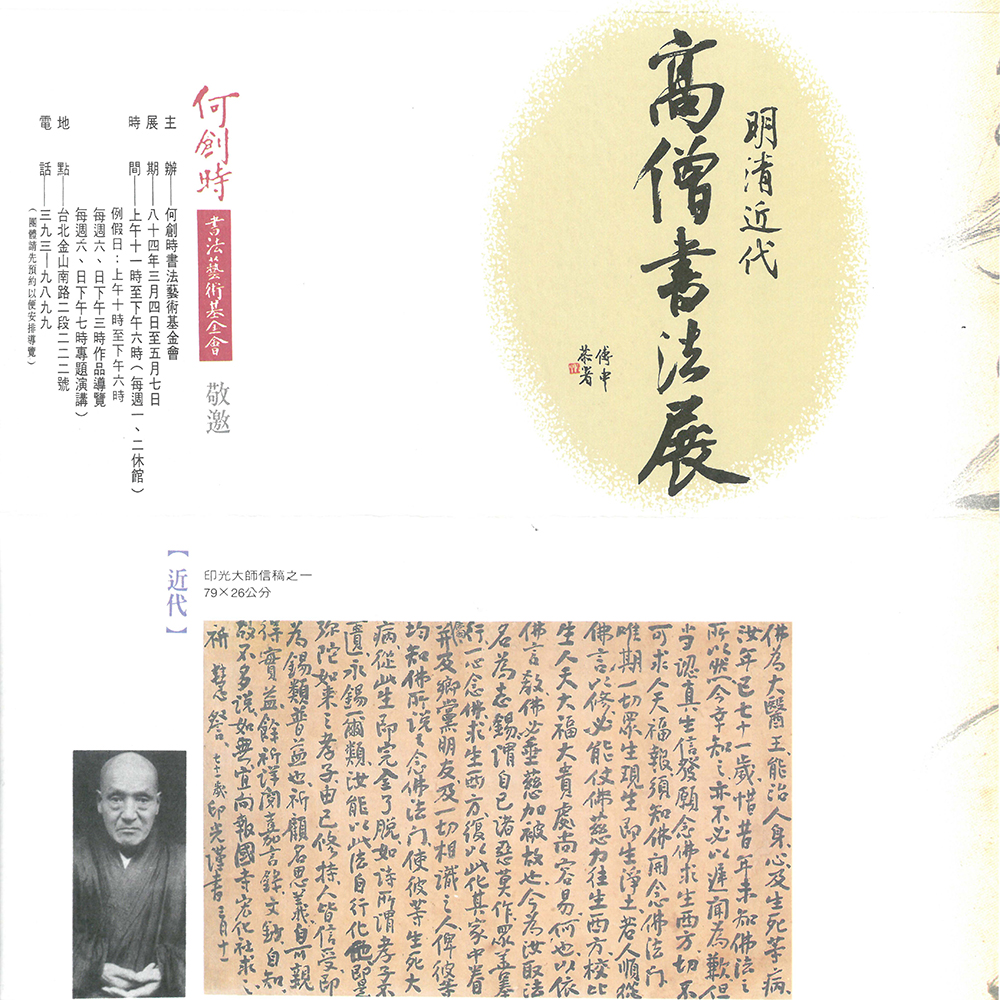 明清近代
高僧書法展
傅申
恭署
何創時
書法藝術基金會
敬邀
主　辦——何創時書法藝術基金會
展　期——八十四年三月四日至五月七日
時　間——上午十一時至下午六時（每週一、二休館）
例假日：上午十時至下午六時
每週六、日下午三時作品導覽
每週六、日下午七時專題演講）
地　點——台北金山南路二段二二二號
電　話——三九三—九八九九
（團體請先預約以便安排導覽）
【近代】
印光大師信稿之一
79×26公分
佛為大醫王、能治人身心及生死等病、
汝年已七十一歲惜昔年未知佛法之
所以然今幸知之亦不必以遲聞為歎但
當認真生信發願念佛求生西方切不
可求人天福報須知佛開念佛法門
唯期一切眾生現生即生淨土若人順從
佛言以修必能仗佛慈力往生西方校比
生人天大福大貴處尚容易何也以依
佛言教佛必垂慈加被故也今為汝取法
名為志錫謂自己諸惡莫作眾善奉
行一心念佛求生西方復以此化其家中眷
屬并及鄉黨朋友及一切相識之人俾彼等
均知佛所說之念佛法門使彼等生死大
病從此生即完全了脫如詩所謂孝子不
匱永錫爾類汝能以此法自行化他即是
彌陀如來之孝子由己修持人皆信受即
為錫類普益也祈顧名思義自可親
得實益餘祈詳閱嘉言錄文鈔自知
故不多說如無宜向報國寺宏化社求之
祈 慧詧 七十一歲印光謹書